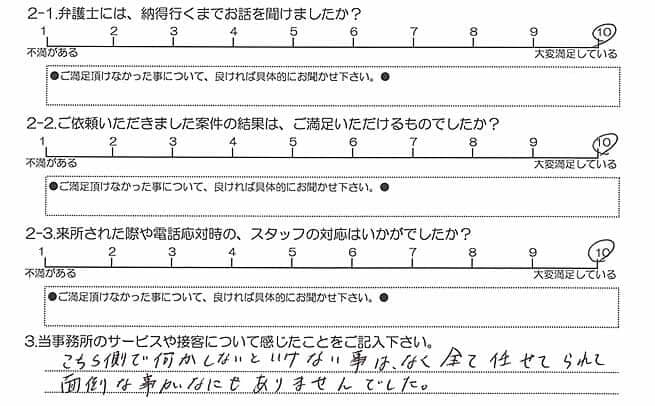 2-1.弁護士には、納得行くまでお話を聞けましたか？
1 2 3 4 5 6 7 8 9 10
不満がある 大変満足している
●ご満足頂けなかった事について、良ければ具体的にお聞かせ下さい。●
2-2.ご依頼いただきました案件の結果は、ご満足いただけるものでしたか？
1 2 3 4 5 6 7 8 9 10
不満がある 大変満足している
●ご満足頂けなかった事について、良ければ具体的にお聞かせ下さい。●
2-3.来所された際や電話応対時の、スタッフの対応はいかがでしたか？
1 2 3 4 5 6 7 8 9 10
不満がある 大変満足している
●ご満足頂けなかった事について、良ければ具体的にお聞かせ下さい。●
3.当事務所のサービスや接客について感じたことをご記入下さい。
こちら側で何かしないといけない事は、なく全て任せてられて
面倒な事がなにもありませんでした。